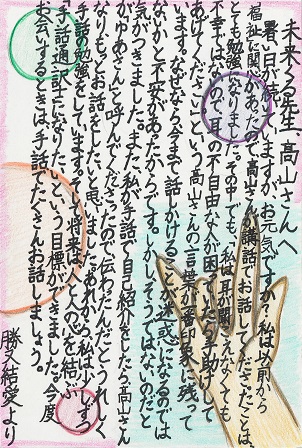 未来くる先生 高山さんへ
暑い日が続いていますが、お元気ですか。私は以前から
福祉に関心があったので高山さんが講話でお話してくださったことは、
とても勉強になりました。その中でも、「私は耳が聞こえなくても
不幸ではないので、耳の不自由な人が困っていたら手助けして
あげてください」という高山さんの言葉が一番印象に残って
います。なぜなら今まで話しかけることが迷惑になるのでは
ないかと不安があったからです。しかし、そうではないのだと
気がつきました。また、私が手話で自己紹介をしたら高山さん
が「ゆあさん」と呼んでくださったので伝わったんだとうれしく
なりもっとお話をしたいと思いました。あれから私は、いっそう
手話の勉強をしています。そして将来は「人と人の心を結ぶ
手話通訳士になりたい」という目標ができました。今度
お会いするときは、手話でたくさんお話しましょう。
勝又結愛より